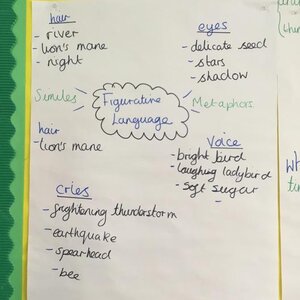 hair
- river
- lion's mane
- night
eyes
- delicate seed
- stars
- shadow
Similes
Figurative
Language
Metaphors
hair
- lion's mane
Voice
- bright bird
- laughing ladybird
- soft sugar
-
cries
- frightening thunderstorm
- earthquake
- spearhead
- bee